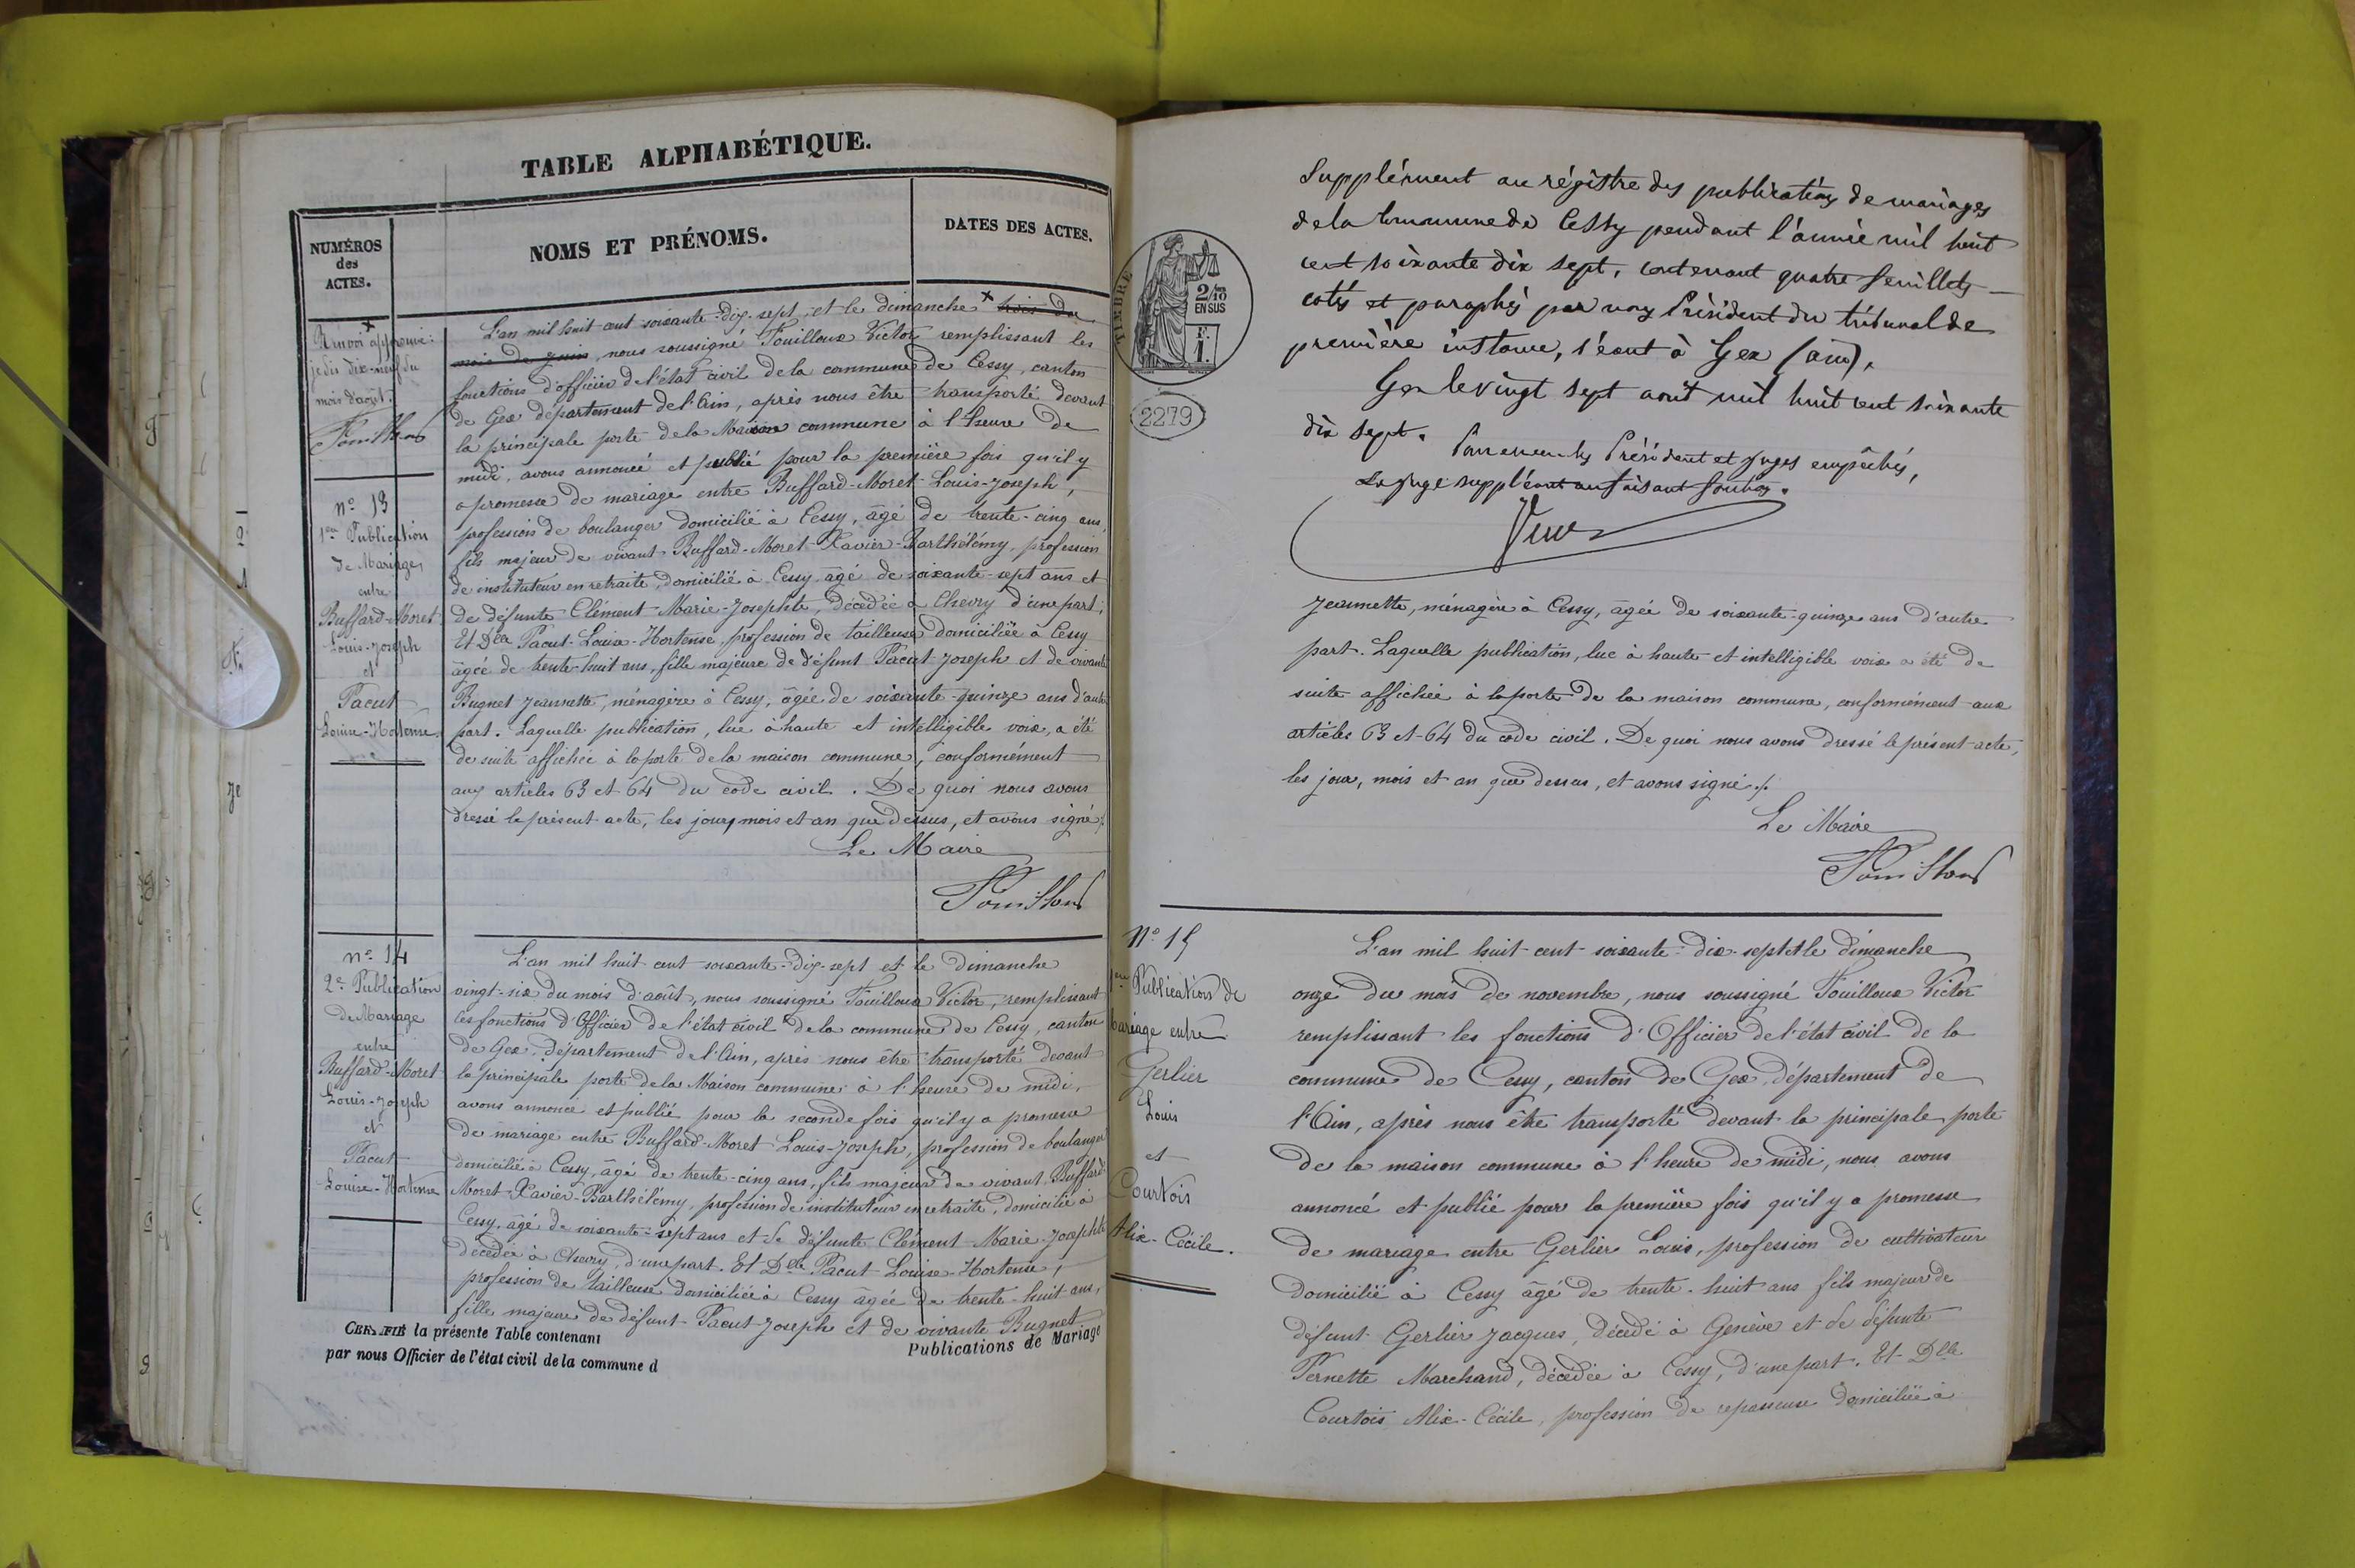 TABLE ALPHABÉTIQUE.
NUMÉROS
des
ACTES.
NOMS ET PRÉNOMS.
DATES DES ACTES.
Renvoi approuvé:
je dis dix-neuf du
mois d'août.
Fouilloux
n° 13
1ère Publication
de Mariage
entre
Buffard-Moret
Louis-Joseph
et
Pacut
Louise-Hortense
L'an mil huit cent soixante-dix-sept et le dimanche trois du
mois de juin, nous soussigné Fouilloux Victor remplissant les
fonctions d'officier de l'état civil de la commune de Cessy, canton
de Gex département de l'Ain, après nous être transporté devant
la principale porte de la Maison commune à l'heure de
midi, avons annoncé et publié pour la première fois qu'il y
a promesse de mariage entre Buffard-Moret Louis-Joseph,
profession de boulanger domicilié à Cessy, âgé de trente-cinq ans,
fils majeur de vivant Buffard-Moret Xavier-Barthélémy, profession
de instituteur en retraite, domicilié à Cessy âgé de soixante-sept ans et
de défunte Clément Marie-Josephte, décédée à Chevry d'une part;
Et Dlle Pacut Louise-Hortense, profession de tailleuse domiciliée à Cessy
âgée de trente-huit ans, fille majeure de défunt Pacut Joseph et de vivante
Bugnet Jeannette, ménagère à Cessy, âgée de soixante-quinze ans d'autre
part. Laquelle publication, lue à haute et intelligible voix, a été
de suite affichée à la porte de la maison commune, conformément
aux articles 63 et 64 du code civil. De quoi nous avons
dressé le présent acte, les jour, mois et an que dessus, et avons signé ./.
Le Maire
Fouilloux
n° 14
2e Publication
de Mariage
entre
Buffard-Moret
Louis-Joseph
et
Pacut
Louise-Hortense
L'an mil huit cent soixante-dix-sept et le dimanche
vingt-six du mois d'août, nous soussigné Fouilloux Victor, remplissant
les fonctions d'Officier de l'état civil de la commune de Cessy, canton
de Gex, département de l'Ain, après nous être transporté devant
la principale porte de la Maison commune à l'heure de midi,
avons annoncé et publié pour la seconde fois qu'il y a promesse
de mariage entre Buffard-Moret Louis-Joseph, profession de boulanger
domicilié à Cessy, âgé de trente-cinq ans, fils majeur de vivant Buffard
Moret Xavier-Barthélémy, profession de instituteur en retraite, domicilié à
Cessy, âgé de soixante-sept ans et de défunte Clément Marie-Josephte
décédée à Chevry, d'une part. Et Dlle Pacut Louise-Hortense,
profession de tailleuse domiciliée à Cessy âgée de trente-huit ans,
fille majeure de défunt Pacut Joseph et de vivante Bugnet
CERTIFIÉ la présente Table contenant
Publications de Mariage
par nous Officier de l'état civil de la commune d
TIMBRE
2/10
EN SUS
F.
1.
2279
Supplément au régistre des publications de mariages
de la commune de Cessy pendant l'année mil huit
cent soixante dix sept, contenant quatre feuillets
cotés et paraphés par nous Président du tribunal de
première instance, séant à Gex (ain).
Gex le vingt sept août mil huit cent soixante
dix sept.
Président et juges empêchés,
Le juge suppléant en faisant fonction.
Jeannette, ménagère à Cessy, âgée de soixante-quinze ans d'autre
part. Laquelle publication, lue à haute et intelligible voix a été de
suite affichée à la porte de la maison commune, conformément aux
articles 63 et 64 du code civil. De quoi nous avons dressé le présent acte,
les jour, mois et an que dessus, et avons signé ./.
Le Maire
Fouilloux
N° 15
1ère Publication de
Mariage entre
Gerlier
Louis
et
Courtois
Alix-Cécile.
L'an mil huit cent soixante-dix-sept et le dimanche
onze du mois de novembre, nous soussigné Fouilloux Victor
remplissant les fonctions d'Officier de l'état civil de la
commune de Cessy, canton de Gex, département de
l'Ain, après nous être transporté devant la principale porte
de la maison commune à l'heure de midi, nous avons
annoncé et publié pour la première fois qu'il y a promesse
de mariage entre Gerlier Louis, profession de cultivateur
domicilié à Cessy âgé de trente-huit ans fils majeur de
défunt Gerlier Jacques, décédé à Genève et de défunte
Pernette Marchand, décédée à Cessy, d'une part. Et Dlle
Courtois Alix-Cécile, profession de repasseuse domiciliée à